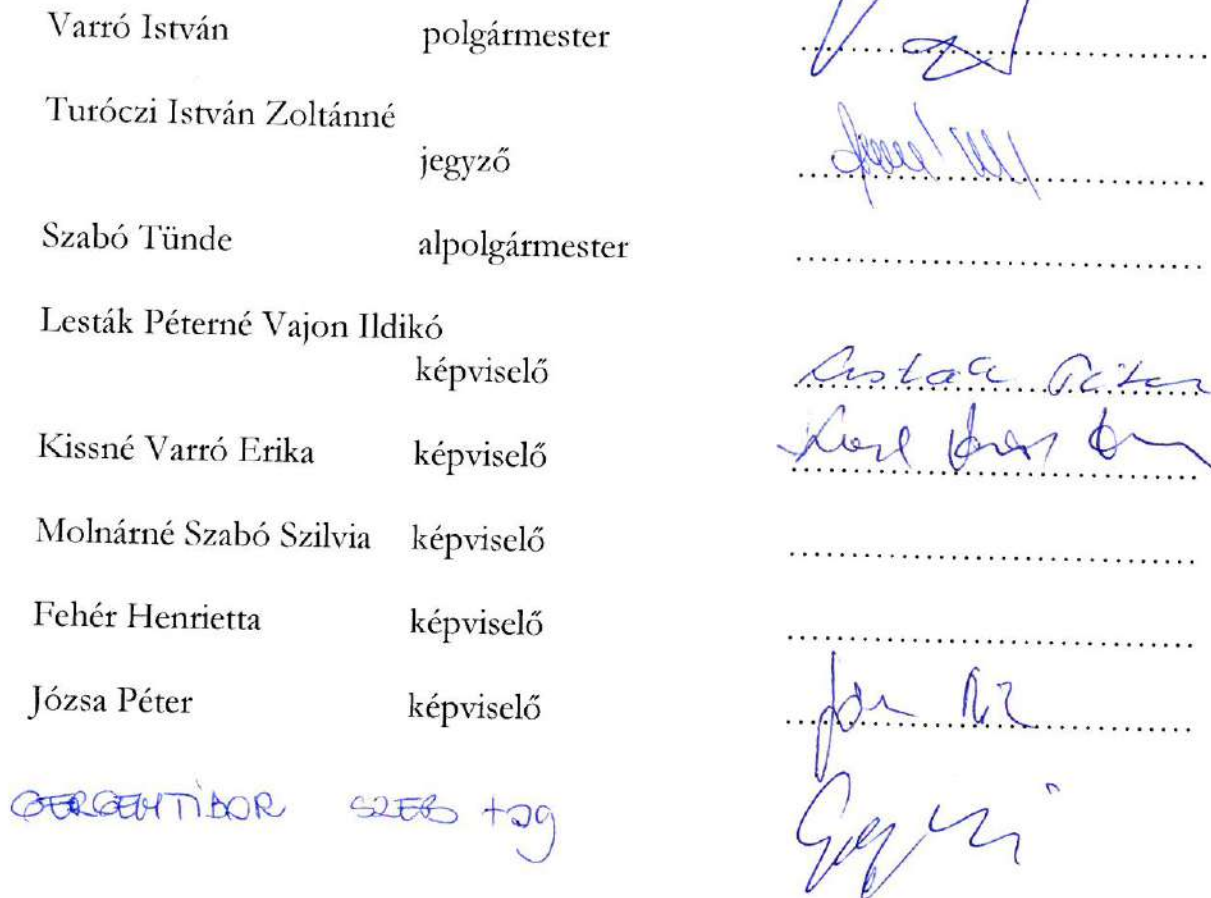 Varró István polgármester
Turóczi István Zoltánné
jegyző
Szabó Tünde alpolgármester
Lesták Péterné Vajon Ildikó
képviselő
Kissné Varró Erika képviselő
Molnárné Szabó Szilvia képviselő
Fehér Henrietta képviselő
Józsa Péter képviselő
TIBOR SZEB tag